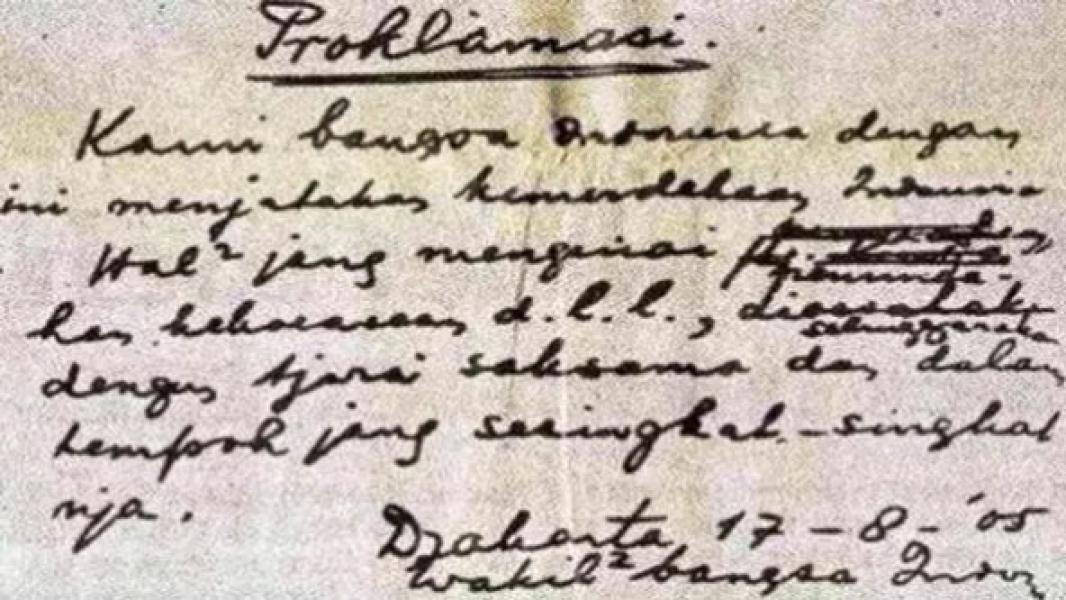 Proklamasi.
Kami bangsa Indonesia dengan
ini menjatakan kemerdekaan Indonesia
Hal² jang mengenai pemindahan
kan kekoeasaan d.l.l., diselenggarakan
dengan tjara saksama dan dalam
tempoh jang sesingkat-singkat
nja.
Djakarta 17-8-'05
Wakil² bangsa Indon